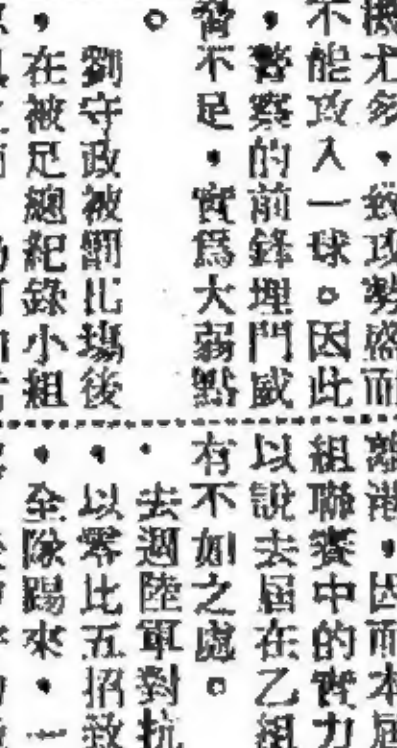 機尤多，致攻勢盛而
不能攻入一球。因此
，警察的前鋒埋門威
脅不足，實爲大弱點
。
劉守政被罰出場後
，在被足總紀錄小組
離港，因而本屆
組聯賽中的實力
以說去屆在乙組
有不如之處。
，去週陸軍對抗
，以零比五招致
，全隊踢來，一